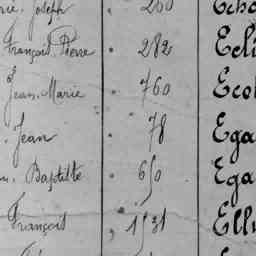 rie. Joseph . 260 Echo
François Pierre . 282 Ecli
Jean-Marie . 760 Ecol
. Jean . 78 Ega
. Baptiste . 650 Ega
François , 1531 Ellu